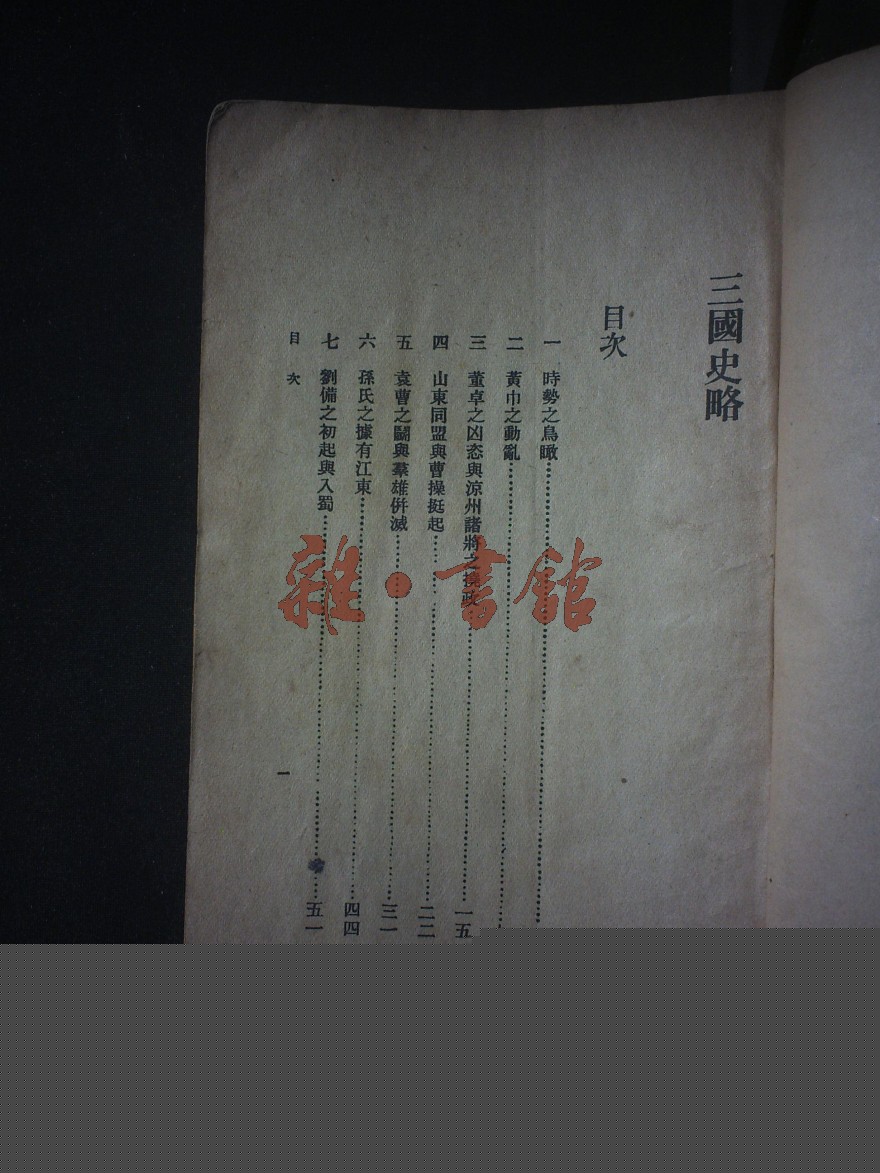 三國史略
目次
一 時勢之鳥瞰
二 黃巾之動亂
三 董卓之凶恣與涼州諸將之擅政 一五
四 山東同盟與曹操挺起 二二
五 袁曹之鬭與羣雄倂滅 三一
六 孫氏之據有江東 四四
七 劉備之初起與入蜀 五一
目次
一
雜·書館